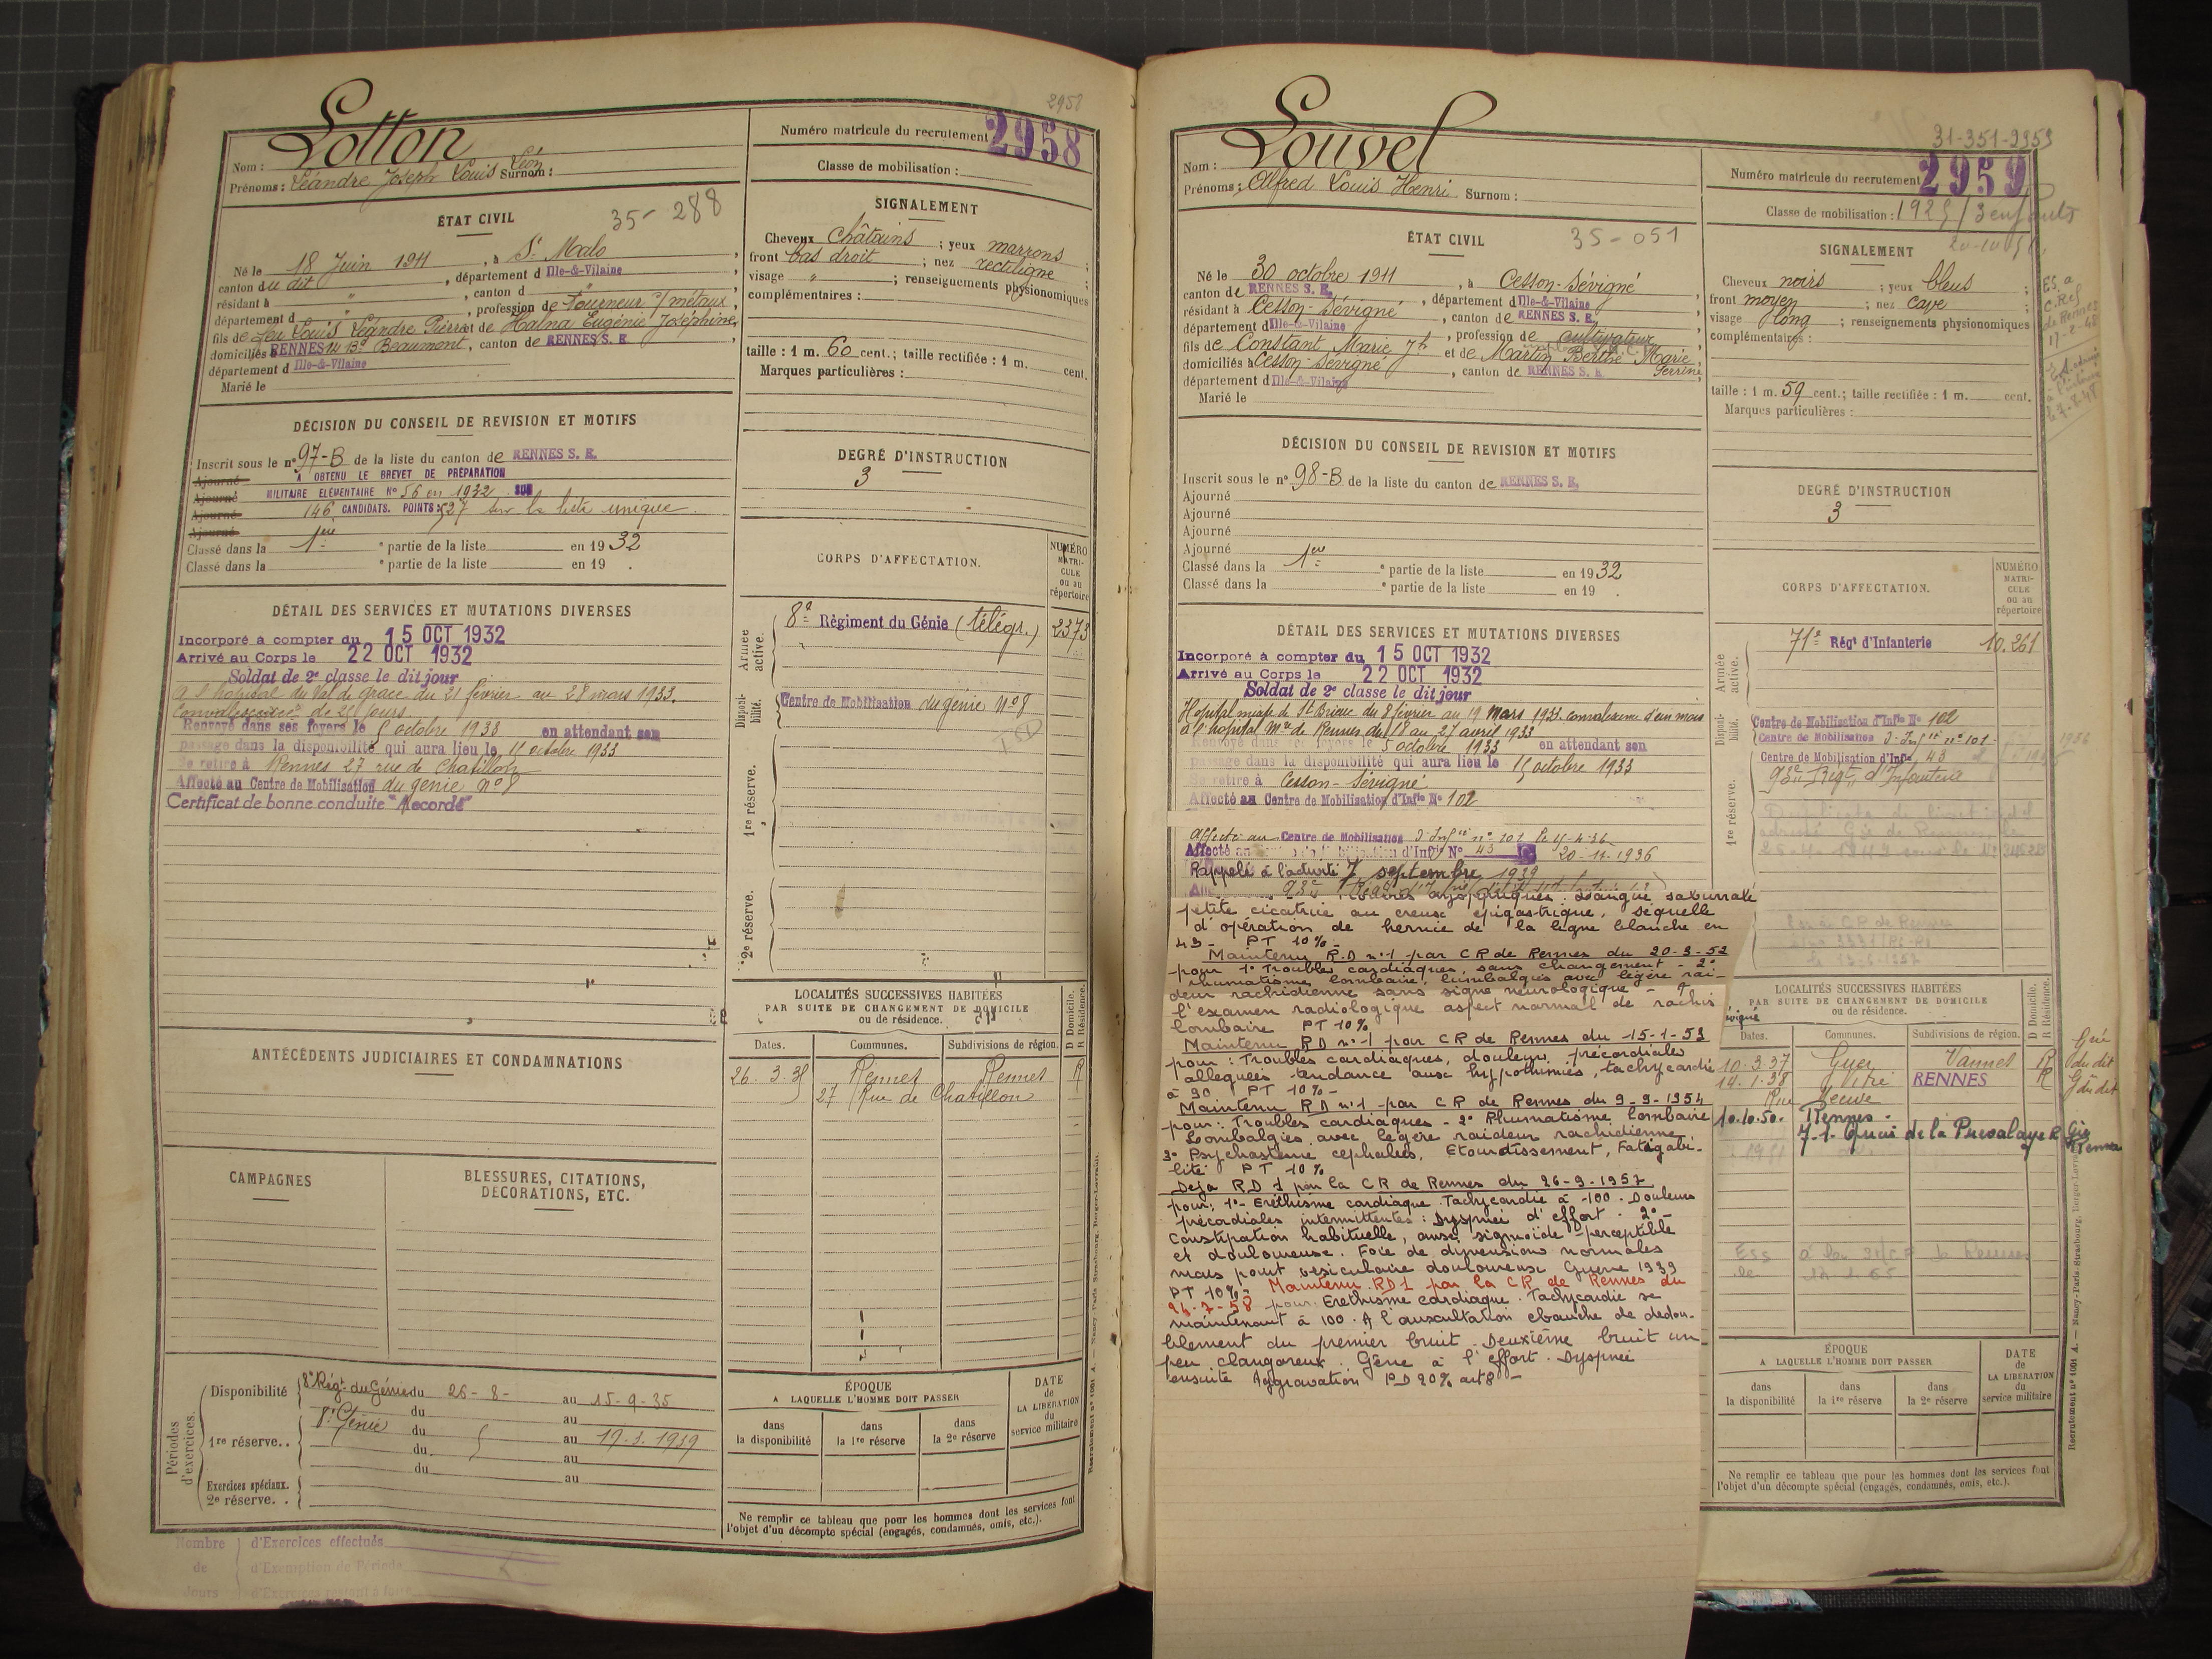 2958
Lotton
Nom :
Prénoms : Léandre Joseph Louis Léon Surnom :
Numéro matricule du recrutement 2958
Classe de mobilisation :
ÉTAT CIVIL
35-288
Né le 18 Juin 1911, à St Malo,
canton du dit, département d Ille-&-Vilaine,
résidant à ", canton d ",
département d ", profession de tourneur s/ métaux,
fils de feu Louis Léandre Pierre et de Halna Eugénie Joséphine,
domiciliés à RENNES 14 Bd Beaumont, canton de RENNES S. E.
département d Ille-&-Vilaine
Marié le
SIGNALEMENT
Cheveux châtains ; yeux marrons ;
front bas droit ; nez rectiligne ;
visage " ; renseignements physionomiques
complémentaires :
taille : 1 m. 60 cent.; taille rectifiée : 1 m. cent.
Marques particulières :
DÉCISION DU CONSEIL DE REVISION ET MOTIFS
Inscrit sous le n° 97-B de la liste du canton de RENNES S. E.
Ajourné A OBTENU LE BREVET DE PRÉPARATION
Ajourné MILITAIRE ÉLÉMENTAIRE N° 56 en 1932 SUR
Ajourné 146 CANDIDATS. POINTS : 527 sur la liste unique.
Ajourné
Classé dans la 1ère partie de la liste en 1932
Classé dans la partie de la liste en 19 .
DEGRÉ D'INSTRUCTION
3
DÉTAIL DES SERVICES ET MUTATIONS DIVERSES
Incorporé à compter du 15 OCT 1932
Arrivé au Corps le 22 OCT 1932
Soldat de 2e classe le dit jour
A l'hôpital du Val de grace du 21 février au 28 mars 1933.
Convalescence de 25 jours
Renvoyé dans ses foyers le 5 octobre 1933 en attendant son
passage dans la disponibilité qui aura lieu le 15 octobre 1933
Se retire à Rennes 27 rue de Chatillon
Affecté au Centre de Mobilisation du génie n° 8
Certificat de bonne conduite "Accordé"
CORPS D'AFFECTATION.
NUMÉRO MATRICULE ou au répertoire
Armée active.
8e Régiment du Génie (télégr.) 2373
Disponibilité.
Centre de Mobilisation du génie N° 8
1re réserve.
2e réserve.
ANTÉCÉDENTS JUDICIAIRES ET CONDAMNATIONS
CAMPAGNES
BLESSURES, CITATIONS, DÉCORATIONS, ETC.
LOCALITÉS SUCCESSIVES HABITÉES
PAR SUITE DE CHANGEMENT DE DOMICILE
ou de résidence.
D Domicile.
R Résidence.
Dates. Communes. Subdivisions de région.
26. 3. 35 Rennes Rennes R
27 Rue de Chatillon
Périodes d'exercices.
Disponibilité 8e Régt. du Génie du 26-8- au 15-9-35
du au
1re réserve.. 8e Génie du 5 au 17.3.1939
du au
du au
Exercices spéciaux.
2e réserve. .
ÉPOQUE
A LAQUELLE L'HOMME DOIT PASSER
dans la disponibilité
dans la 1re réserve
dans la 2e réserve
DATE de LA LIBÉRATION du service militaire
Ne remplir ce tableau que pour les hommes dont les services font
l'objet d'un décompte spécial (engagés, condamnés, omis, etc.).
Nombre de Jours
d'Exercices effectués
d'Exemption de Période
d'Exercices restant à faire
31-351-2959
Louvel
Nom :
Prénoms : Alfred Louis Henri Surnom :
Numéro matricule du recrutement 2959
Classe de mobilisation : 1925 / 3 enfants
ÉTAT CIVIL
35-051
Né le 30 octobre 1911, à Cesson-Sévigné
canton de RENNES S. E., département d Ille-&-Vilaine
résidant à Cesson-Sévigné, canton de RENNES S. E.,
département d Ille-&-Vilaine, profession de cultivateur
fils de Constant Marie Jh et de Martin Berthe Marie Perrine
domiciliés à Cesson-Sévigné, canton de RENNES S. E.
département d Ille-&-Vilaine
Marié le
SIGNALEMENT
Cheveux noirs ; yeux bleus ;
front moyen ; nez cave ;
visage long ; renseignements physionomiques
complémentaires :
taille : 1 m. 59 cent.; taille rectifiée : 1 m. cent.
Marques particulières :
DÉCISION DU CONSEIL DE REVISION ET MOTIFS
Inscrit sous le n° 98-B de la liste du canton de RENNES S. E.
Ajourné
Ajourné
Ajourné
Ajourné
Classé dans la 1ère partie de la liste en 1932
Classé dans la partie de la liste en 19 .
DEGRÉ D'INSTRUCTION
3
DÉTAIL DES SERVICES ET MUTATIONS DIVERSES
Incorporé à compter du 15 OCT 1932
Arrivé au Corps le 22 OCT 1932
Soldat de 2e classe le dit jour
Hopital mixte de St Brieuc du 8 février au 19 Mars 1933. convalescence d'un mois
à l'hopital Mre de Rennes du 18 au 27 avril 1933
Renvoyé dans ses foyers le 5 octobre 1933 en attendant son
passage dans la disponibilité qui aura lieu le 15 octobre 1933
Se retire à Cesson-Sévigné
Affecté au Centre de Mobilisation d'Infie N° 102
Affecté au Centre de Mobilisation d'Infie n° 101 le 15-4-36
Affecté au d'Infie N° 43 20-11-1936
Rappelé à l'activité 7 septembre 1939
CORPS D'AFFECTATION.
NUMÉRO MATRICULE ou au répertoire
Armée active.
71e Régt d'Infanterie 10.261
Disponibilité.
Centre de Mobilisation d'Infie N° 102
Centre de Mobilisation d'Infie n° 101
Centre de Mobilisation d'Infie 43
1re réserve.
93e Regt d'Infanterie
langue saburrale
petite cicatrice au creux épigastrique, séquelle
d'opération de hernie de la ligne blanche en
43 - PT 10% -
Maintenu R.D n°1 par CR de Rennes du 20-3-52
pour 1° Troubles cardiaques, sans changement - 2°
rhumatisme lombaire, lumbalgies avec légère rai-
deur rachidienne sans signe neurologique - à
l'examen radiologique aspect normal de rachis
lombaire PT 10%
Maintenu RD n°1 par CR de Rennes du 15-1-53
pour : Troubles cardiaques, douleurs précordiales
alleguées tendance aux lypothimies, tachycardie
à 90 PT 10% -
Maintenu RD n°1 par CR de Rennes du 9-9-1954
pour : Troubles cardiaques - 2° Rhumatisme lombaire
Lombalgies avec légère raideur rachidienne
3° Psychastenie céphalées, Etourdissement, Fatigabi-
lité PT 10%
Deja RD 1 par la CR de Rennes du 26-9-1957
pour : 1°- Eréthisme cardiaque. Tachycardie à 100. Douleurs
précordiales intermittentes : Dyspnée d'effort. 2°-
Constipation habituelle, anse sigmoïde perceptible
et douloureuse. Foie de dimensions normales
mais point vésiculaire douloureux Guerre 1939
PT 10% - Maintenu RD1 par la CR de Rennes du
24-7-58 pour : Erethisme cardiaque. Tachycardie se
maintenant à 100. A l'auscultation ebauche de dedou-
blement du premier bruit. Deuxième bruit un
peu clangoreux. Gêne à l'effort. Dyspnée
ensuite Aggravation PD 20% art 8 -
LOCALITÉS SUCCESSIVES HABITÉES
PAR SUITE DE CHANGEMENT DE DOMICILE
ou de résidence.
D Domicile.
R Résidence.
Dates. Communes. Subdivisions de région.
10.3.37 Guer Vannes R
14.1.38 Vitré RENNES R
Rue Neuve
10.10.50. Rennes.
71. Quai de la Prevalaye R
ÉPOQUE
A LAQUELLE L'HOMME DOIT PASSER
dans la disponibilité
dans la 1re réserve
dans la 2e réserve
DATE de LA LIBÉRATION du service militaire
Ne remplir ce tableau que pour les hommes dont les services font
l'objet d'un décompte spécial (engagés, condamnés, omis, etc.).